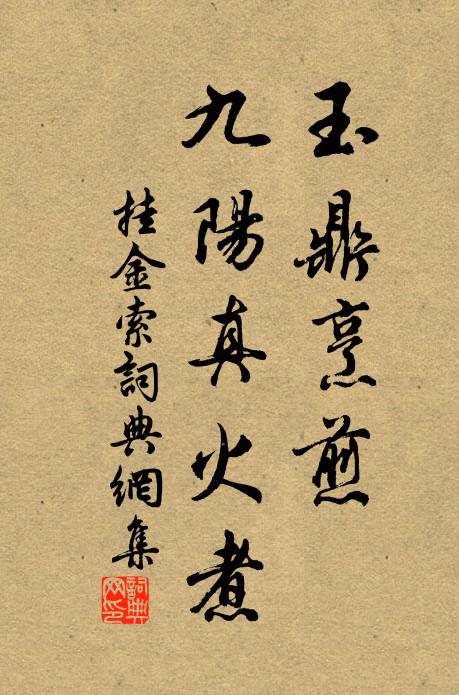 玉鼎烹煎
九陽真火煮
挂金索詞典網集
詞典
网印